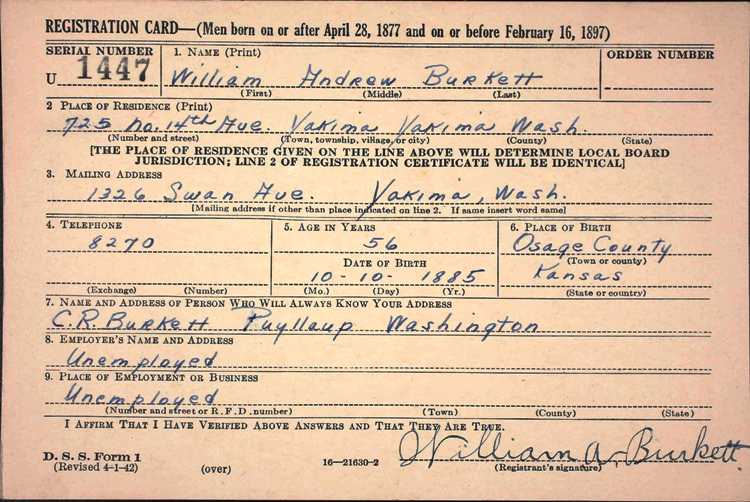 REGISTRATION CARD—(Men born on or after April 28, 1877 and on or before February 16, 1897)
SERIAL NUMBER 1. NAME (Print) ORDER NUMBER
U 1447 William Andrew Burkett
(First) (Middle) (Last)
2 PLACE OF RESIDENCE (Print)
725 No. 14th Ave. Yakima Yakima Wash.
(Number and street) (Town, township, village, or city) (County) (State)
[THE PLACE OF RESIDENCE GIVEN ON THE LINE ABOVE WILL DETERMINE LOCAL BOARD
JURISDICTION; LINE 2 OF REGISTRATION CERTIFICATE WILL BE IDENTICAL]
3. MAILING ADDRESS
1326 Swan Ave. Yakima, Wash.
[Mailing address if other than place indicated on line 2. If same insert word same]
4. TELEPHONE 5. AGE IN YEARS 6. PLACE OF BIRTH
8270 56 Osage County
DATE OF BIRTH (Town or county)
10-10-1885 Kansas
(Exchange) (Number) (Mo.) (Day) (Yr.) (State or country)
7. NAME AND ADDRESS OF PERSON WHO WILL ALWAYS KNOW YOUR ADDRESS
C.R. Burkett Puyllaup Washington
8. EMPLOYER'S NAME AND ADDRESS
Unemployed
9. PLACE OF EMPLOYMENT OR BUSINESS
Unemployed
(Number and street or R. F. D. number) (Town) (County) (State)
I AFFIRM THAT I HAVE VERIFIED ABOVE ANSWERS AND THAT THEY ARE TRUE.
William A. Burkett
D. S. S. Form 1
(Revised 4-1-42) (over) 16—21630-2 (Registrant's signature)